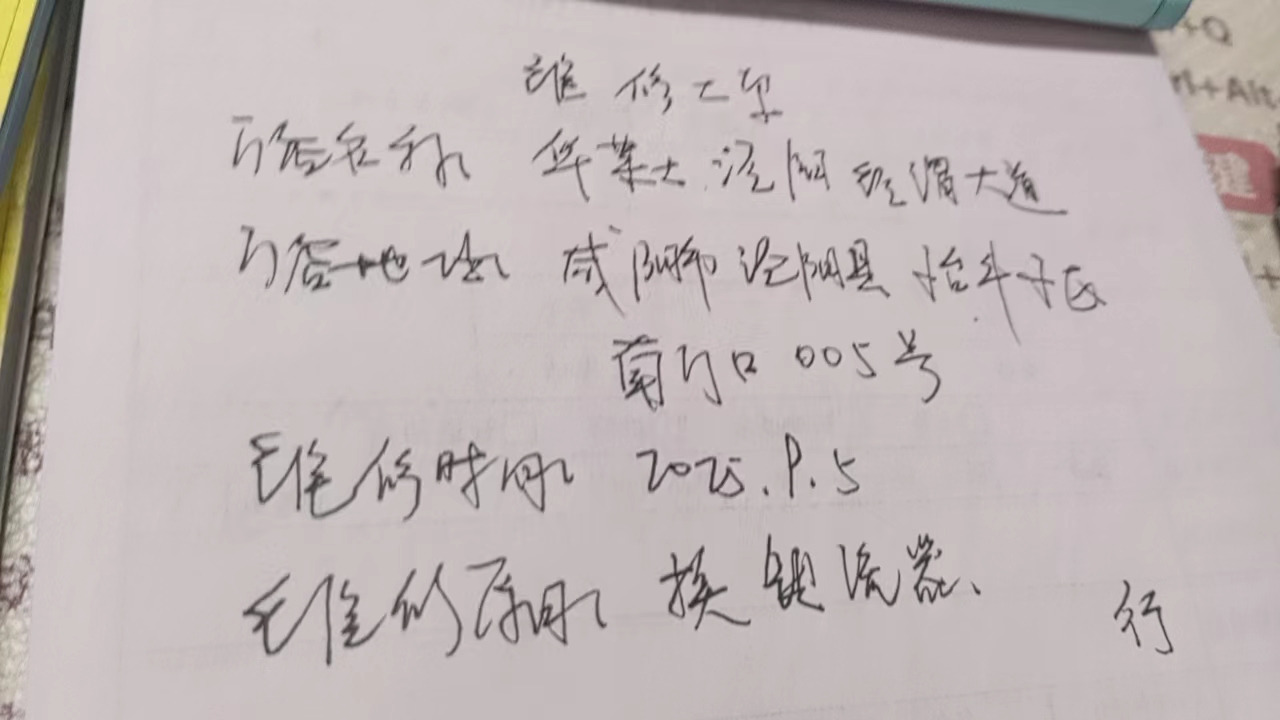 维修工单
门店名称 华莱士泾阳泾渭大道
门店地址 咸阳市泾阳县
门口005号
维修时间 2025.9.5
维修原因 换镇流器、
行
+Q
+Alt
建